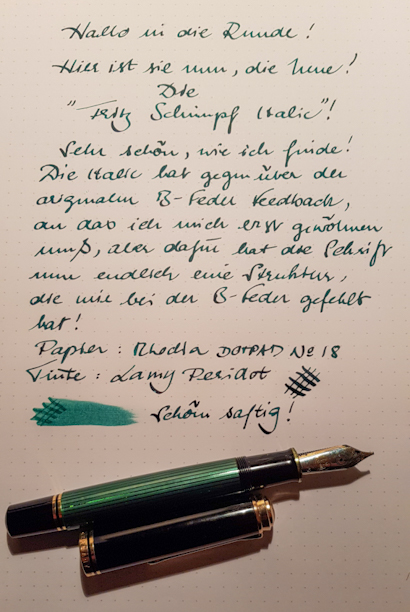 Hallo in die Runde!
Hier ist sie nun, die neue!
Die
"Fritz Schimpf Italic"!
Sehr schön, wie ich finde!
Die Italic hat gegenüber der
originalen B-Feder Feedback,
an das ich mich erst gewöhnen
muß, aber dafür hat die Schrift
nun endlich eine Struktur,
die mir bei der B-Feder gefehlt
hat!
Papier: Rhodia DOTPAD No 18
Tinte: Lamy Peridot
Schön saftig!